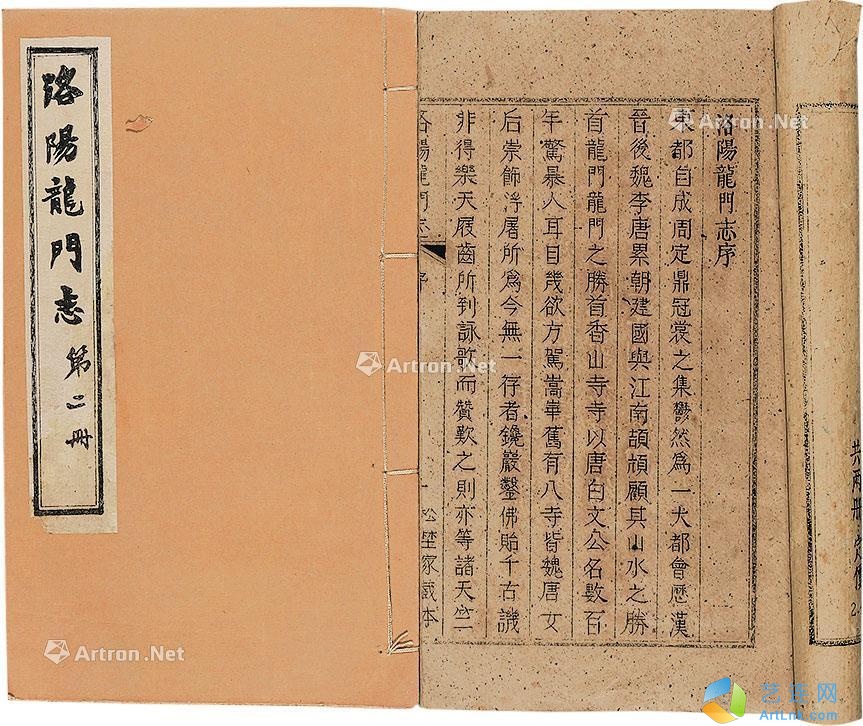 洛陽龍門志 第二冊
洛陽龍門志序
東都自成周定鼎冠裳之集鬱然爲一大都會歷漢
晉後魏李唐累朝建國與江南頡頏顧其山水之勝
首龍門龍門之勝首香山寺寺以唐白文公名數百
年驚暴人耳目幾欲方駕嵩華舊有八寺皆魏唐女
后崇飾浮屠所爲今無一存者鑱巖鑿佛貽千古譏
非得樂天屐齒所到詠歌而贊歎之則亦等諸天竺
洛陽龍門志 序 一 家藏本
共兩冊
Artron.Net
Artron.Net
Artron.Net
Artron.Net
艺连网
ArtLnk.com